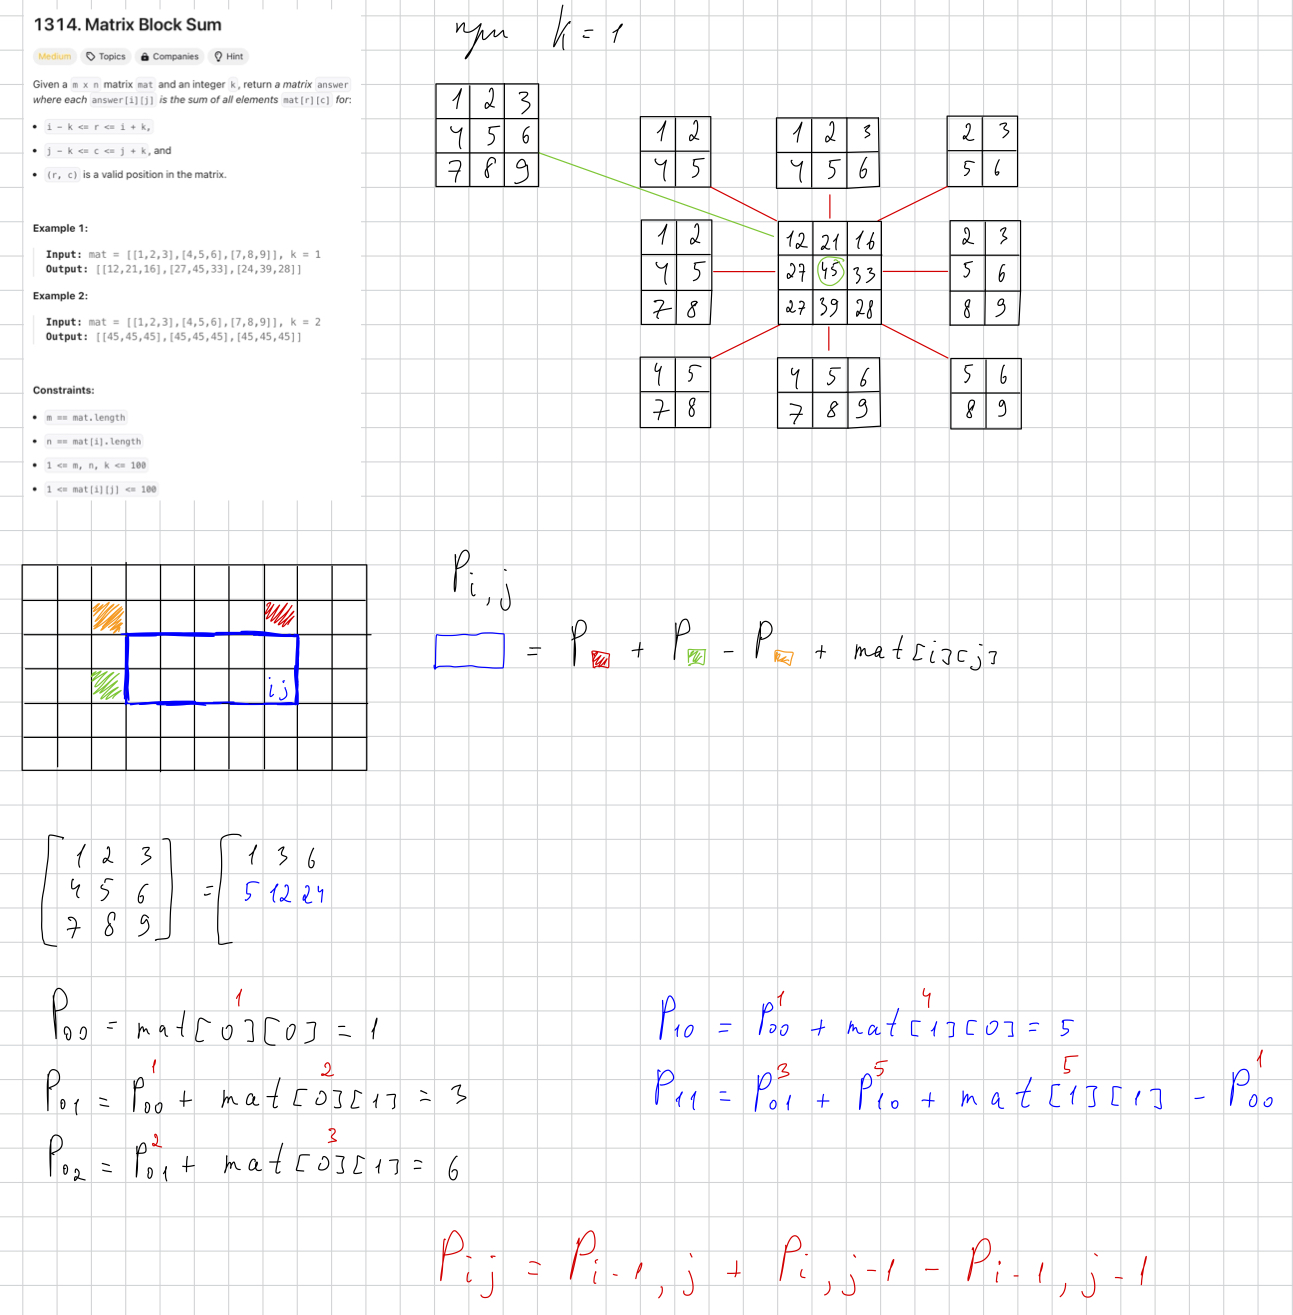 1314. Matrix Block Sum
Medium Topics Companies Hint
Given a m x n matrix mat and an integer k, return a matrix answer
where each answer[i][j] is the sum of all elements mat[r][c] for:
• i - k <= r <= i + k,
• j - k <= c <= j + k, and
• (r, c) is a valid position in the matrix.
Example 1:
Input: mat = [[1,2,3],[4,5,6],[7,8,9]], k = 1
Output: [[12,21,16],[27,45,33],[24,39,28]]
Example 2:
Input: mat = [[1,2,3],[4,5,6],[7,8,9]], k = 2
Output: [[45,45,45],[45,45,45],[45,45,45]]
Constraints:
• m == mat.length
• n == mat[i].length
• 1 <= m, n, k <= 100
• 1 <= mat[i][j] <= 100
при k = 1
1 2 3
4 5 6
7 8 9
1 2
4 5
1 2 3
4 5 6
2 3
5 6
1 2
4 5
7 8
12 21 16
27 45 33
27 39 28
2 3
5 6
8 9
4 5
7 8
4 5 6
7 8 9
5 6
8 9
i j
P i, j
= P + P - P + mat[i][j]
1 2 3
4 5 6
7 8 9
=
1 3 6
5 12 24
1
P00 = mat[0][0] = 1
1 2
P01 = P00 + mat[0][1] = 3
2 3
P02 = P01 + mat[0][1] = 6
1 4
P10 = P00 + mat[1][0] = 5
3 5 5 1
P11 = P01 + P10 + mat[1][1] - P00
Pij = Pi-1, j + Pi, j-1 - Pi-1, j-1